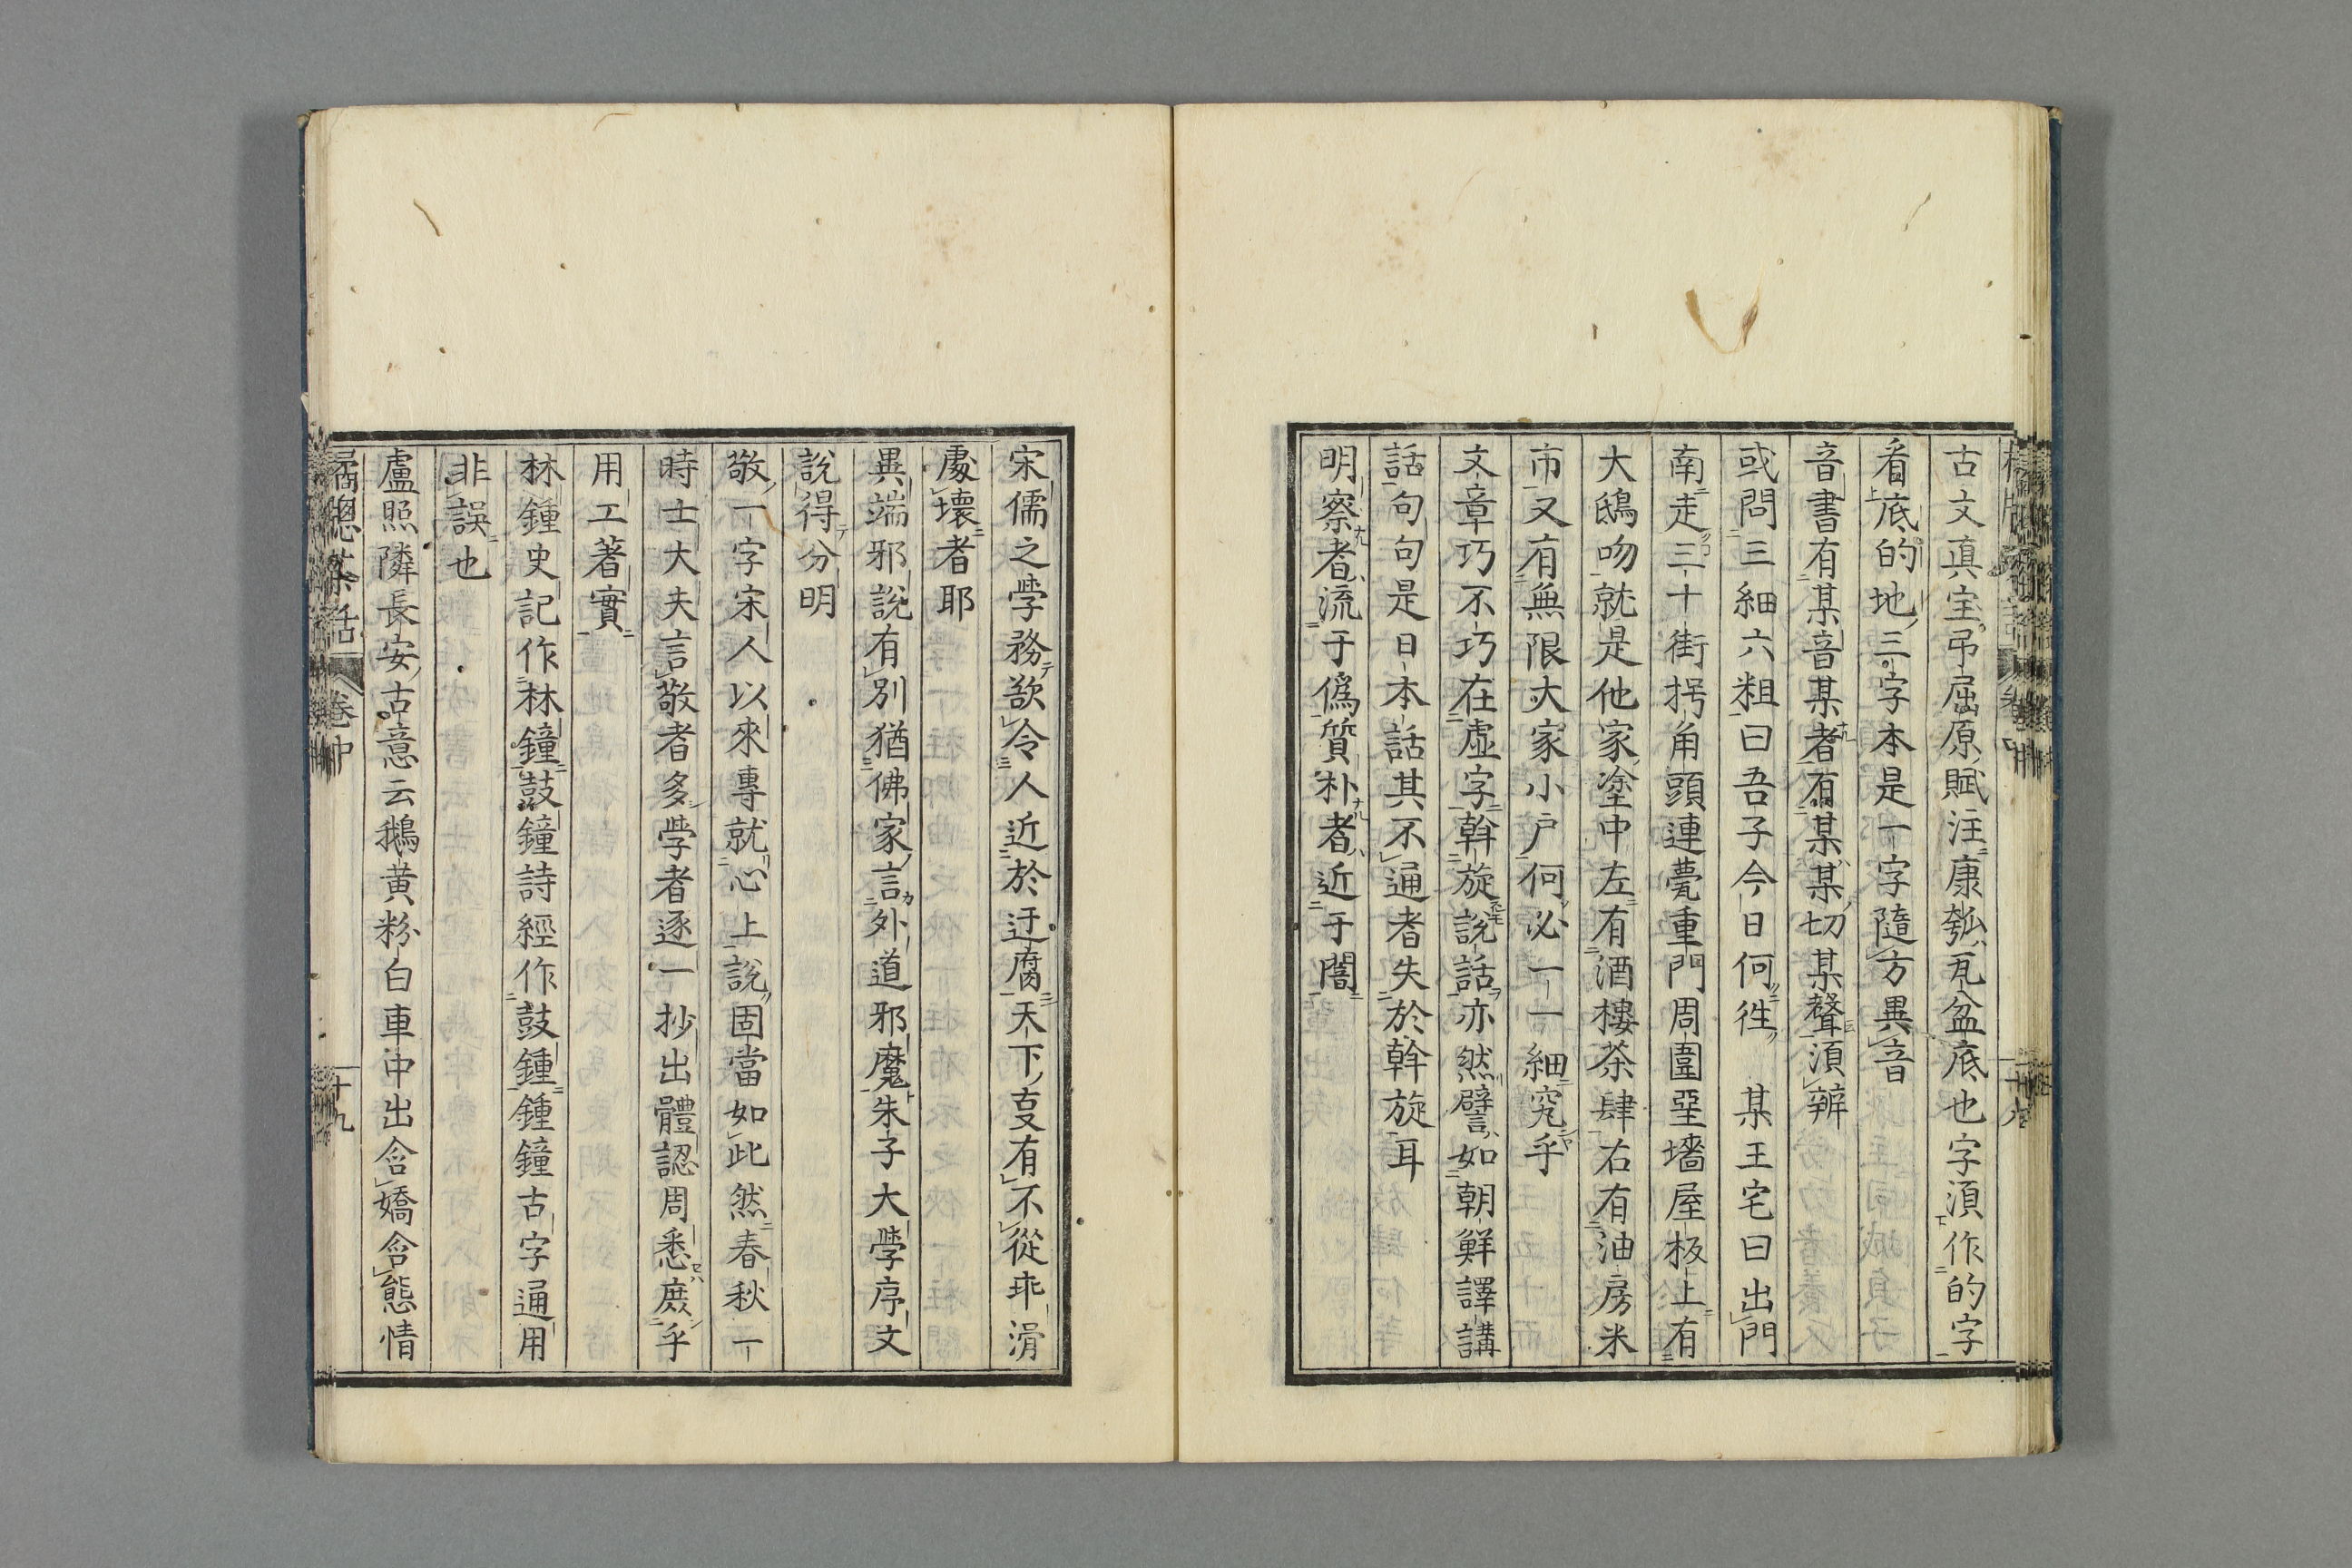 古文真宝弔屈原賦注康瓠瓦盆底也字須作的字
看底的地三字本是一字隨方異音
音書有某音某者有某某切某聲須辨
或問三細六粗曰吾子今日何徃 某王宅曰出門
南走三十街拐角頭連甍重門周圍堊墻屋板上有
大鴟吻就是他家塗中左有酒樓茶肆右有油房米
市又有無限大家小戶何必一一細究乎
文章巧不巧在虛字斡旋說話亦然譬如朝鮮譯講
話句句是日本話其不通者失於斡旋耳
明察者流于僞質朴者近于闇
宋儒之學務欲令人近於迂腐天下叓有不從乖滑
處壞者耶
異端邪說有別猶佛家言外道邪魔朱子大學序文
說得分明
敬一字宋人以來專就心上說固當如此然春秋一
時士大夫言敬者多學者逐一抄出體認周悉庶乎
用工著實
林鍾史記作林鐘鼓鐘詩經作鼓鍾鍾鐘古字通用
非誤也
盧照隣長安古意云鵝黄粉白車中出含嬌含態情
橘牕茶話 卷中 十九